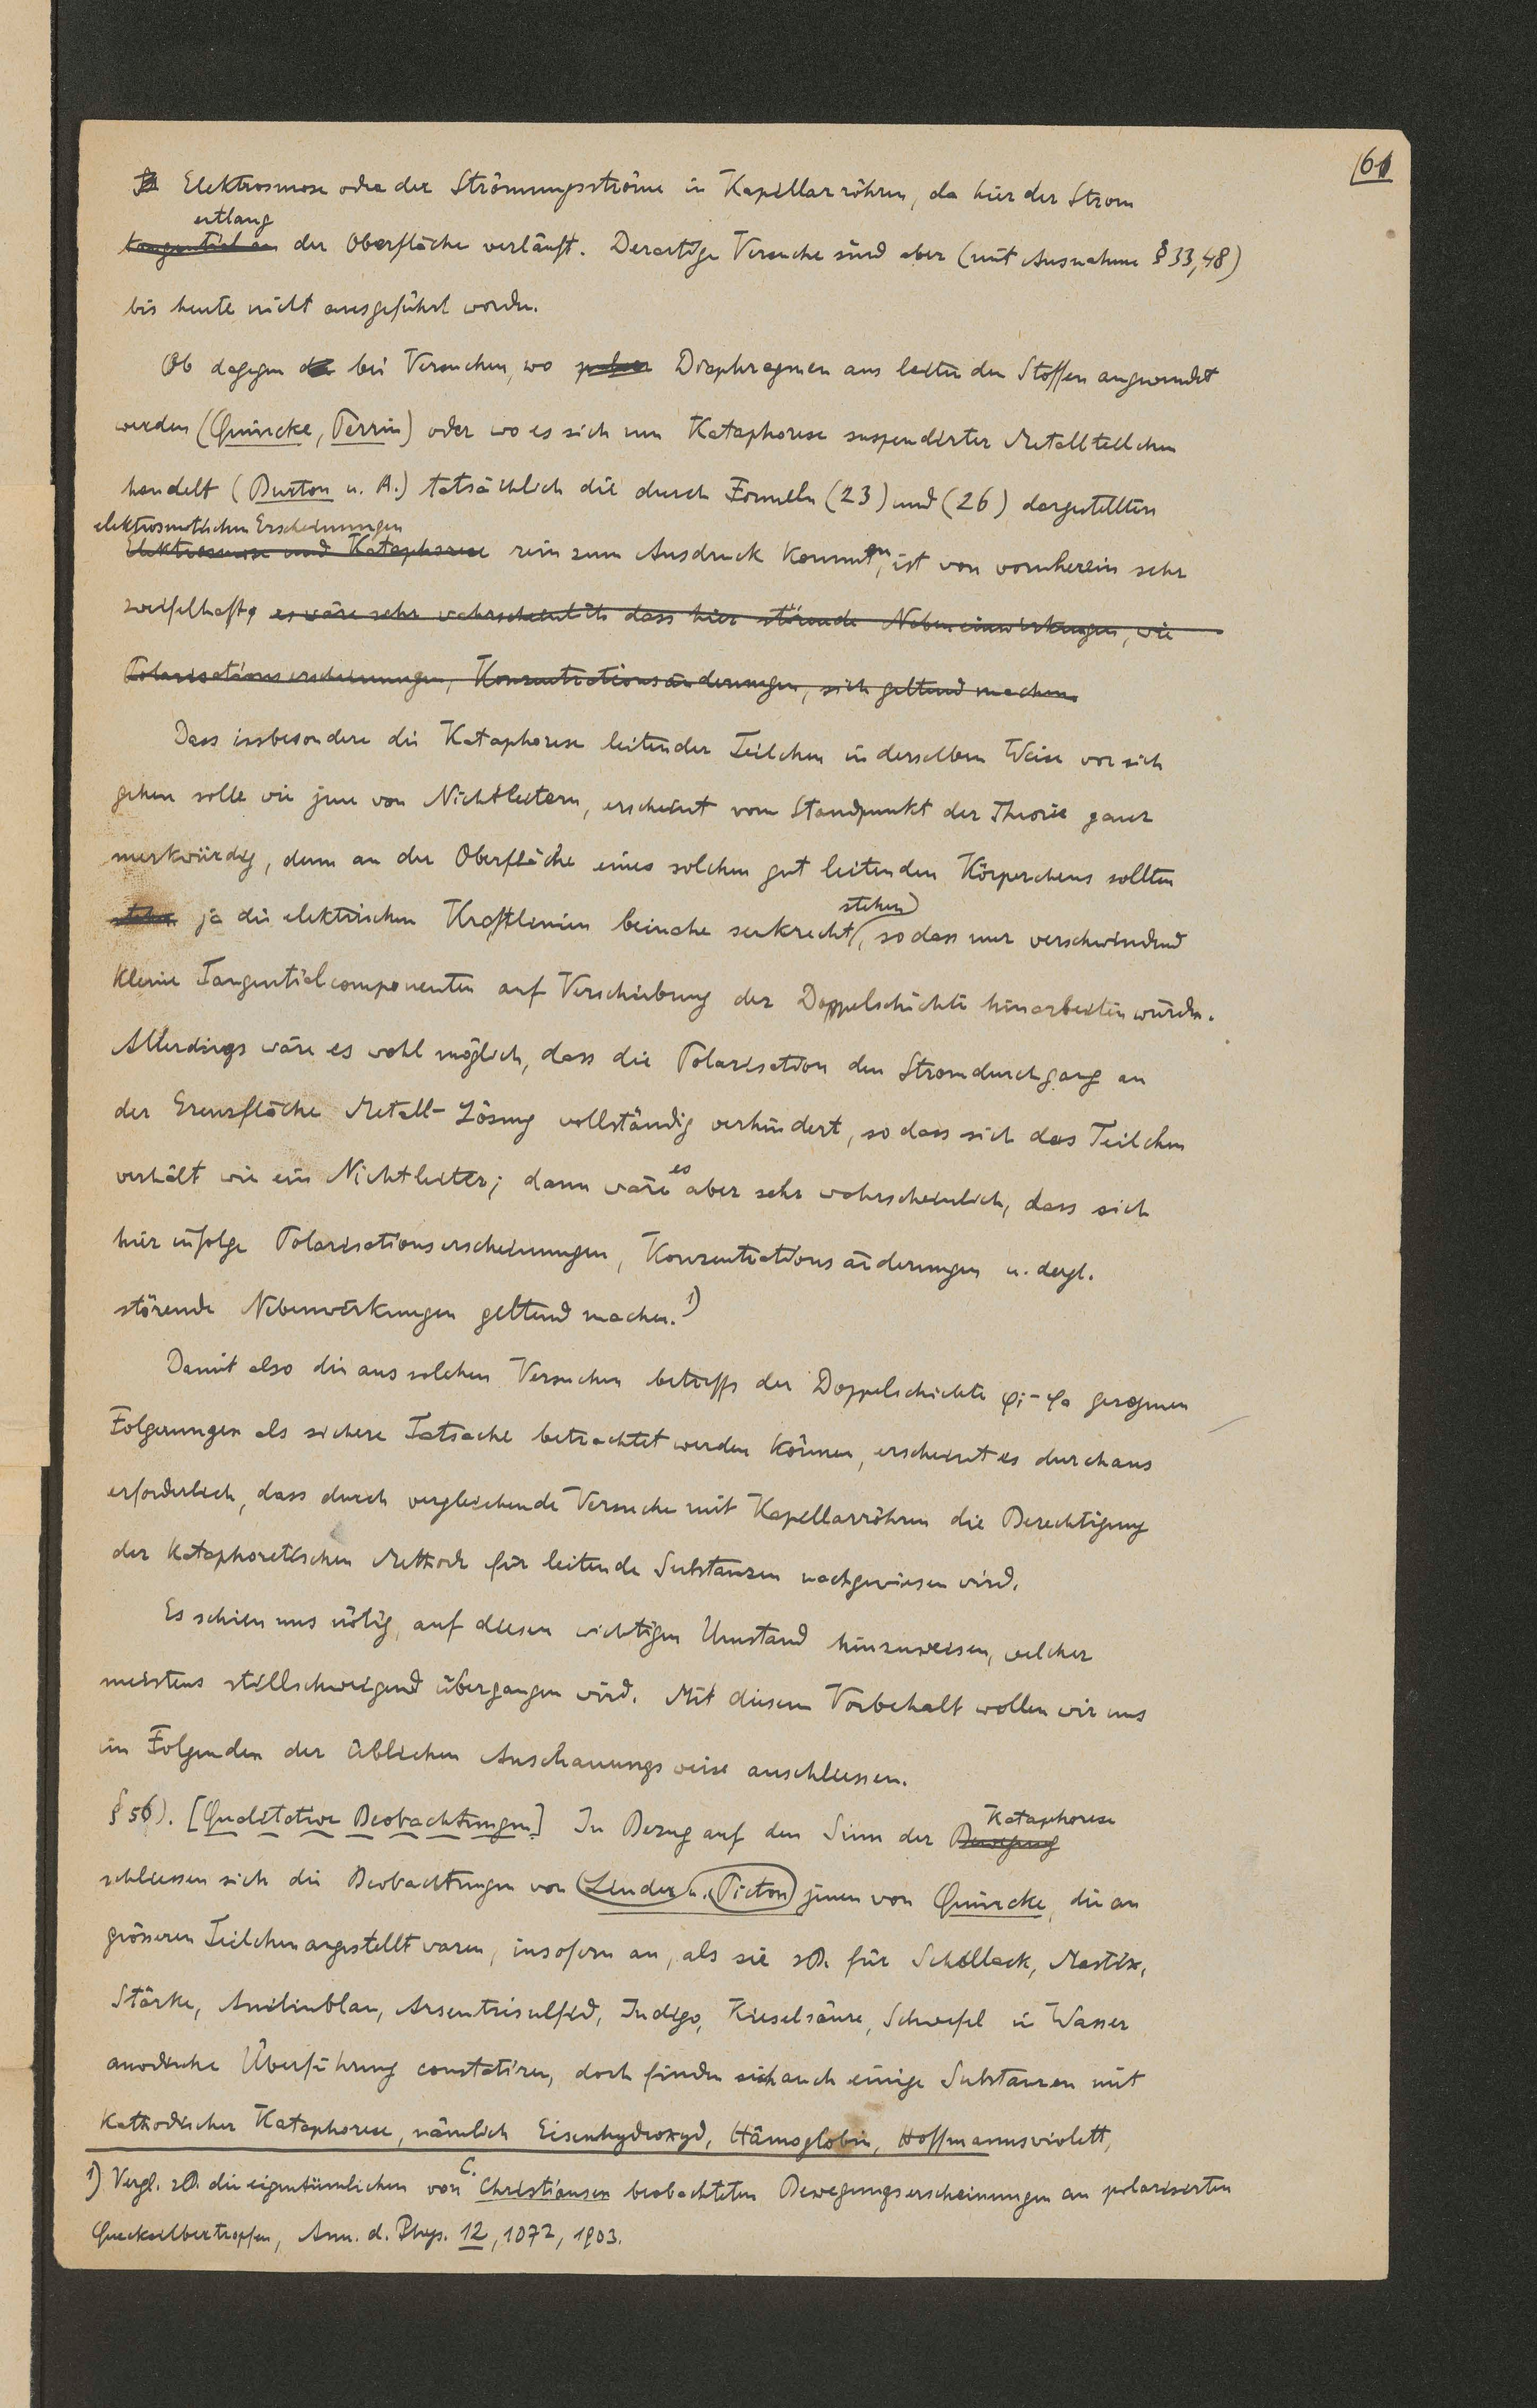 61
Elektrosmose oder der Strömungsströme in Kapillarröhren, da hier der Strom
entlang
tangential an der Oberfläche verläuft. Derartige Versuche sind aber (mit Ausnahme § 33, 48)
bis heute nicht ausgeführt worden.
Ob dagegen bei Versuchen, wo Diaphragmen aus leitenden Stoffen angewendet
werden (Quincke, Perrin) oder wo es sich um Kataphorese suspendirter Metallteilchen
handelt (Burton u. A.) tatsächlich die durch Formeln (23) und (26) dargestellten
elektrosmotischen Erscheinungen
Elektrosmose und Kataphorese rein zum Ausdruck kommen, ist von vornherein sehr
zweifelhaft, es wäre sehr wahrscheinlich dass hier störende Nebeneinwirkungen, wie
Polarisationserscheinungen, Konzentrationsänderungen, sich geltend machen.
Dass insbesondere die Kataphorese leitender Teilchen in derselben Weise vor sich
gehen solle wie jene von Nichtleitern, erscheint vom Standpunkt der Theorie ganz
merkwürdig, denn an der Oberfläche eines solchen gut leitenden Körperchens sollten
stehen
ja die elektrischen Kraftlinien beinahe senkrecht, so dass nur verschwindend
kleine Tangentialcomponenten auf Verschiebung der Doppelschichte hinarbeiten würden.
Allerdings wäre es wohl möglich, dass die Polarisation den Stromdurchgang an
der Grenzfläche Metall-Lösung vollständig verhindert, so dass sich das Teilchen
verhält wie ein Nichtleiter; dann wäre es aber sehr wahrscheinlich, dass sich
hier infolge Polarisationserscheinungen, Konzentrationsänderungen u. dergl.
störende Nebenwirkungen geltend machen.¹)
Damit also die aus solchen Versuchen betreffs der Doppelschichte φi-φa gezogenen
Folgerungen als sichere Tatsache betrachtet werden können, erscheint es durchaus
erforderlich, dass durch vergleichende Versuche mit Kapillarröhren die Berechtigung
der kataphoretischen Methode für leitende Substanzen nachgewiesen wird.
Es schien uns nötig, auf diesen wichtigen Umstand hinzuweisen, welcher
meistens stillschweigend übergangen wird. Mit diesem Vorbehalt wollen wir uns
im Folgenden der üblichen Anschauungsweise anschliessen.
§ 56). [Qualitative Beobachtungen] In Bezug auf den Sinn der Bewegung Kataphorese
schliessen sich die Beobachtungen von Linder u. Picton jenen von Quincke, die an
grösseren Teilchen angestellt waren, insofern an, als sie zB. für Schellack, Mastix,
Stärke, Anilinblau, Arsentrisulfid, Indigo, Kieselsäure, Schwefel in Wasser
anodische Überführung constatiren, doch finden sich auch einige Substanzen mit
kathodischer Kataphorese, nämlich Eisenhydroxyd, Hämoglobin, Hoffmannsviolett,
1) Vergl. zB. die eigentümlichen von C. Christiansen beobachteten Bewegungserscheinungen an polarisirten
Quecksilbertropfen, Ann. d. Phys. 12, 1072, 1903.